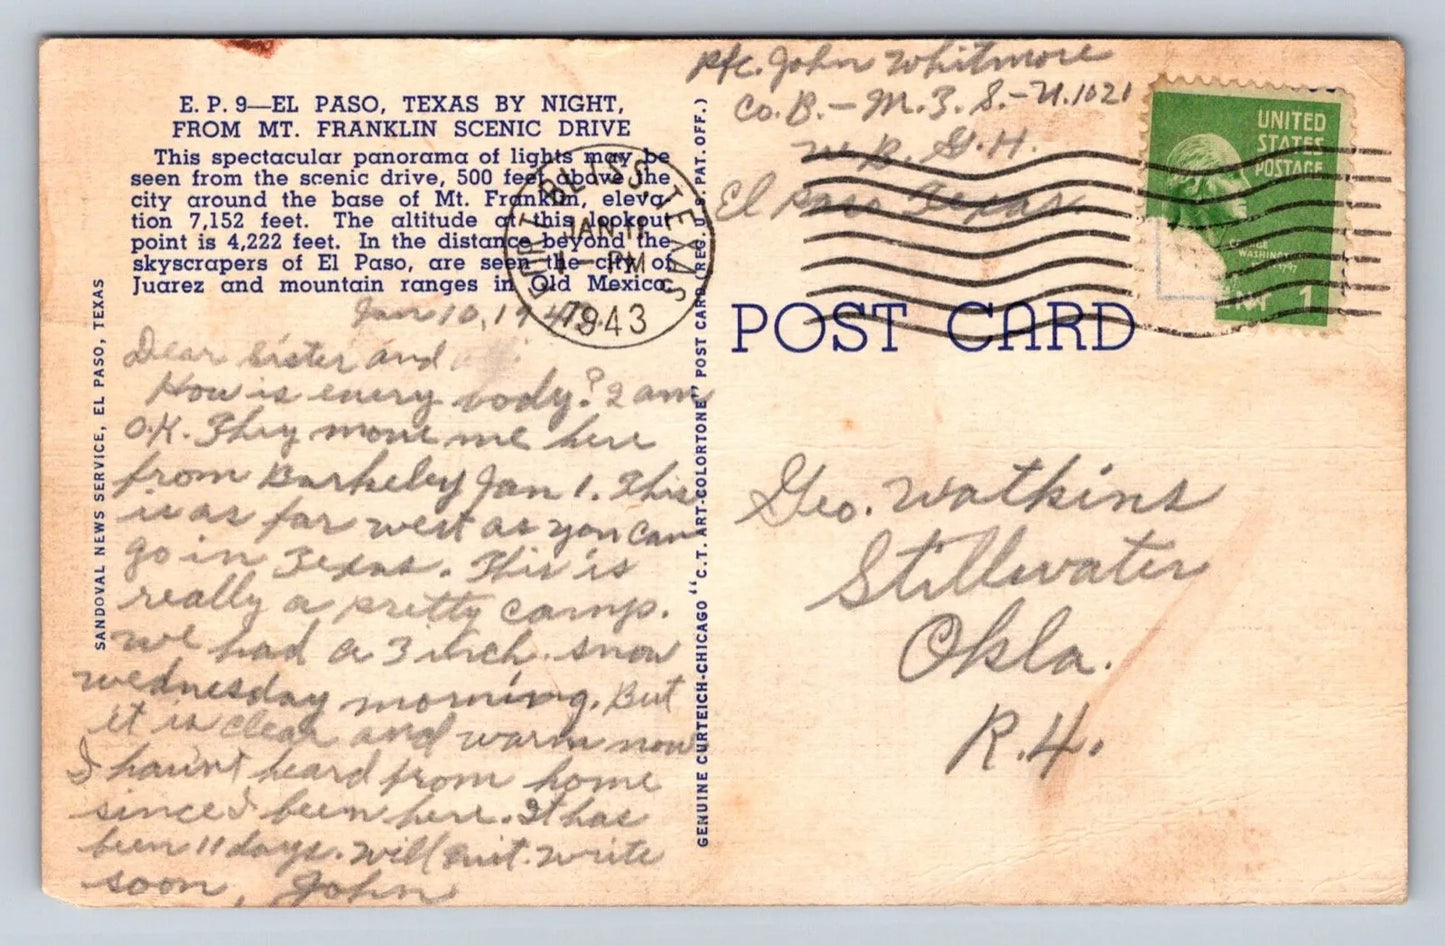 E. P. 9—EL PASO, TEXAS BY NIGHT,
FROM MT. FRANKLIN SCENIC DRIVE
This spectacular panorama of lights may be
seen from the scenic drive, 500 feet above the
city around the base of Mt. Franklin, eleva
tion 7,152 feet. The altitude at this lookout
point is 4,222 feet. In the distance beyond the
skyscrapers of El Paso, are seen the city of
Juarez and mountain ranges in Old Mexico.
SANDOVAL NEWS SERVICE, EL PASO, TEXAS
Jan 10, 1943.
Dear Sister and
How is every body? I am
O.K. They move me here
from Barkeley Jan 1. This
is as far west as you can
go in Texas. This is
really a pretty camp.
We had a 3 inch snow
wednesday morning. But
it is clear and warm now
I havint heard from home
since I been here. It has
been 11 days. Will quit. Write
soon, John
GENUINE CURTEICH-CHICAGO "C.T. ART-COLORTONE" POST CARD (REG. U.S. PAT. OFF.)
Pfc. John Whitmore
Co. B. - M. 3. S. - U.1021
W. B. G. H.
El Paso Texas
FORT BLISS, TEXAS
JAN 11
1 - PM
1943
UNITED
STATES
POSTAGE
WASHINGTON
1797
1
POST CARD
Geo. Watkins
Stillwater
Okla.
R.4.